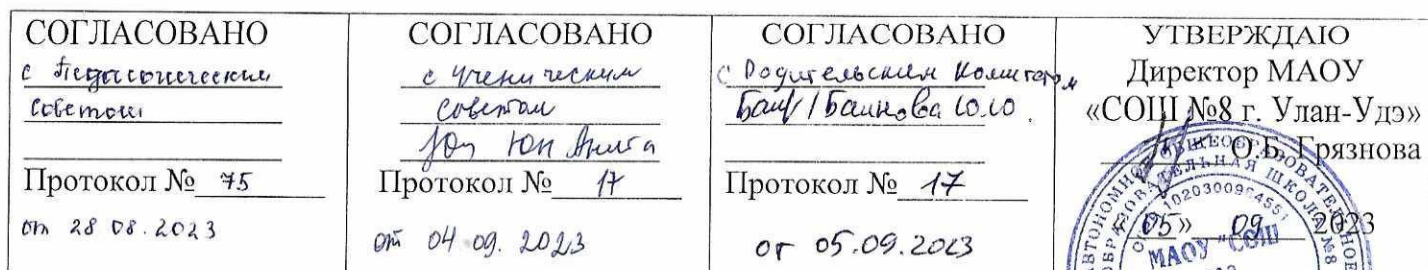 СОГЛАСОВАНО
с Педагогическим
советом
Протокол № 75
от 28 08.2023
СОГЛАСОВАНО
с ученическим
советом
Юн Анита
Протокол № 17
от 04.09.2023
СОГЛАСОВАНО
с Родительским Комитетом
Баинова Ю.Ю.
Протокол № 17
от 05.09.2023
УТВЕРЖДАЮ
Директор МАОУ
«СОШ №8 г. Улан-Удэ»
О.Б. Грязнова
«05» 09 2023
МАОУ "СОШ